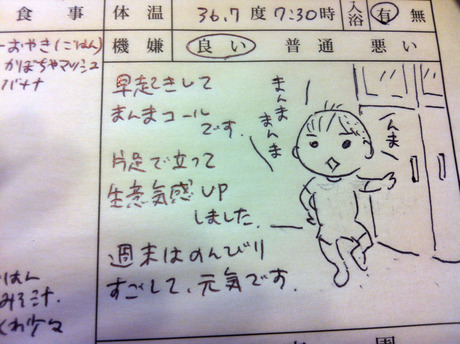 食事 体温 36.7度 7:30時 入浴 有 無
機嫌 良い 普通 悪い
おやき(ごはん)
かぼちゃマッシュ
バナナ
早起きして
まんまコール
です。
片足で立って
生意気感UP
しました。
週末はのんびり
すごして、元気です。
まんま
まんま
んま
ごはん
みそ汁.